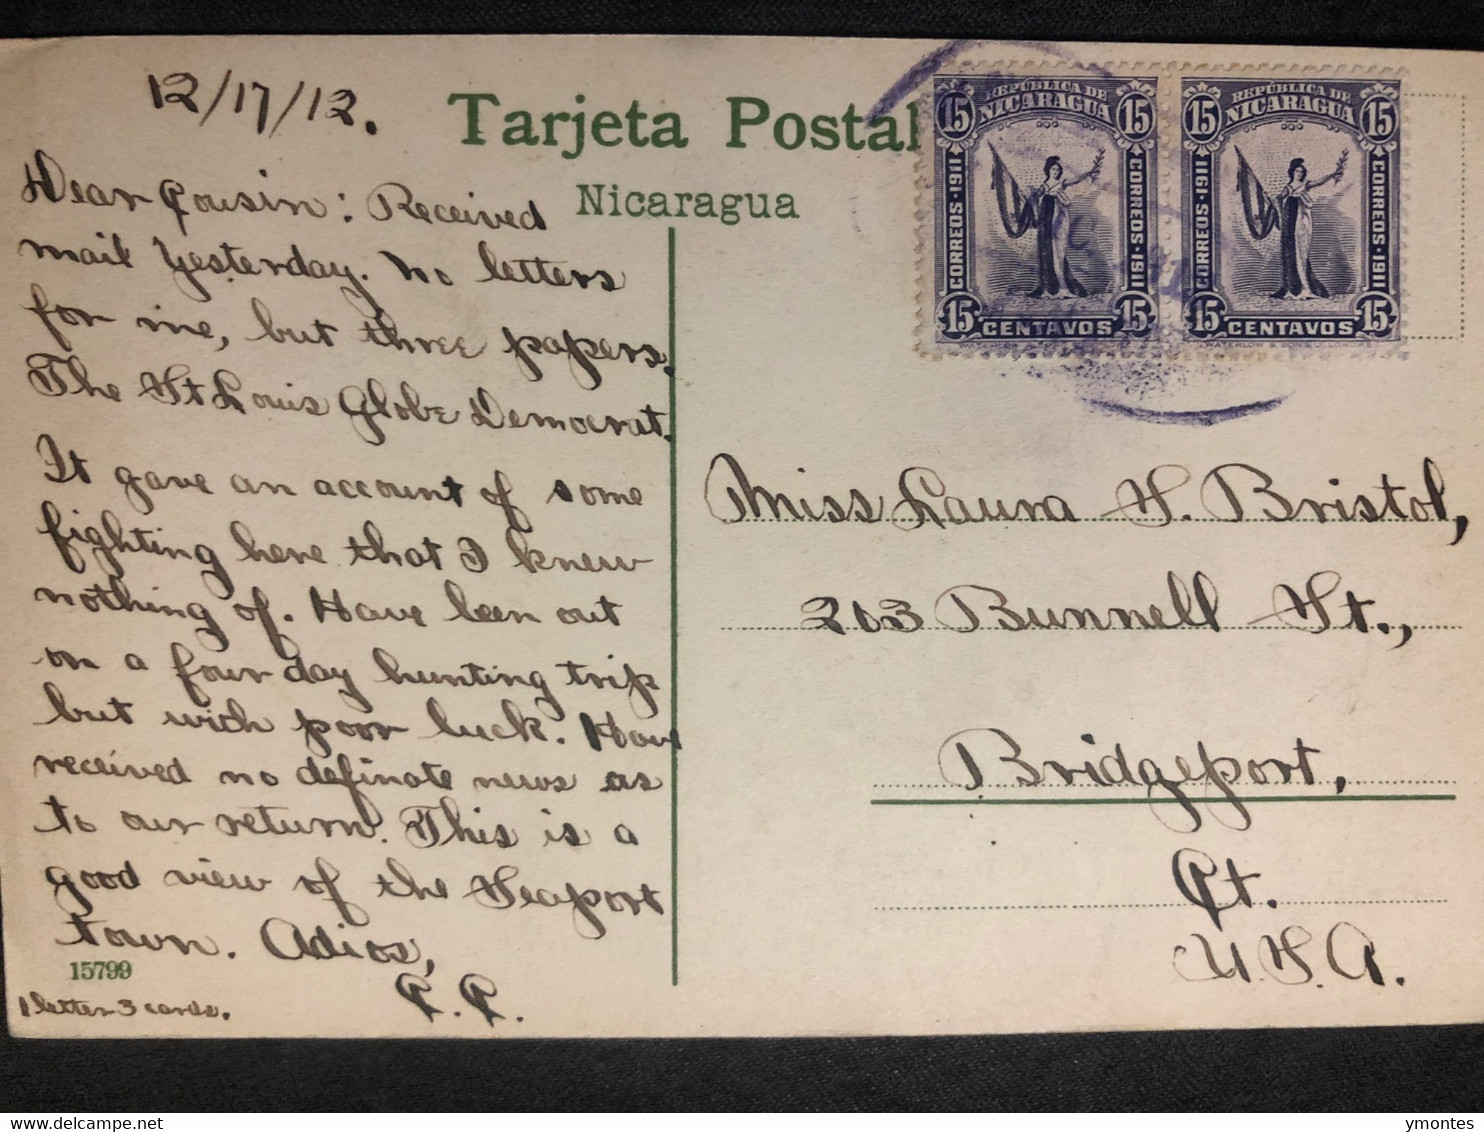 12/17/12.
Tarjeta Postal
Nicaragua
Dear Cousin: Received
mail Yesterday. No letters
for me, but three papers.
The St Louis Globe Democrat.
It gave an account of some
fighting here that I knew
nothing of. Have been out
on a four day hunting trip
but with poor luck. Have
received no definate news as
to our return. This is a
good view of the Seaport
town. Adios,
C. C.
15799
1 letter 3 cards.
15 REPÚBLICA DE 15
NICARAGUA
CORREOS·1911
CORREOS·1911
15 CENTAVOS 15
15 REPÚBLICA DE 15
NICARAGUA
CORREOS·1911
CORREOS·1911
15 CENTAVOS 15
Miss Laura S. Bristol,
203 Bunnell St.,
Bridgeport,
Ct.
U.S.A.
delcampe.net
ymontes